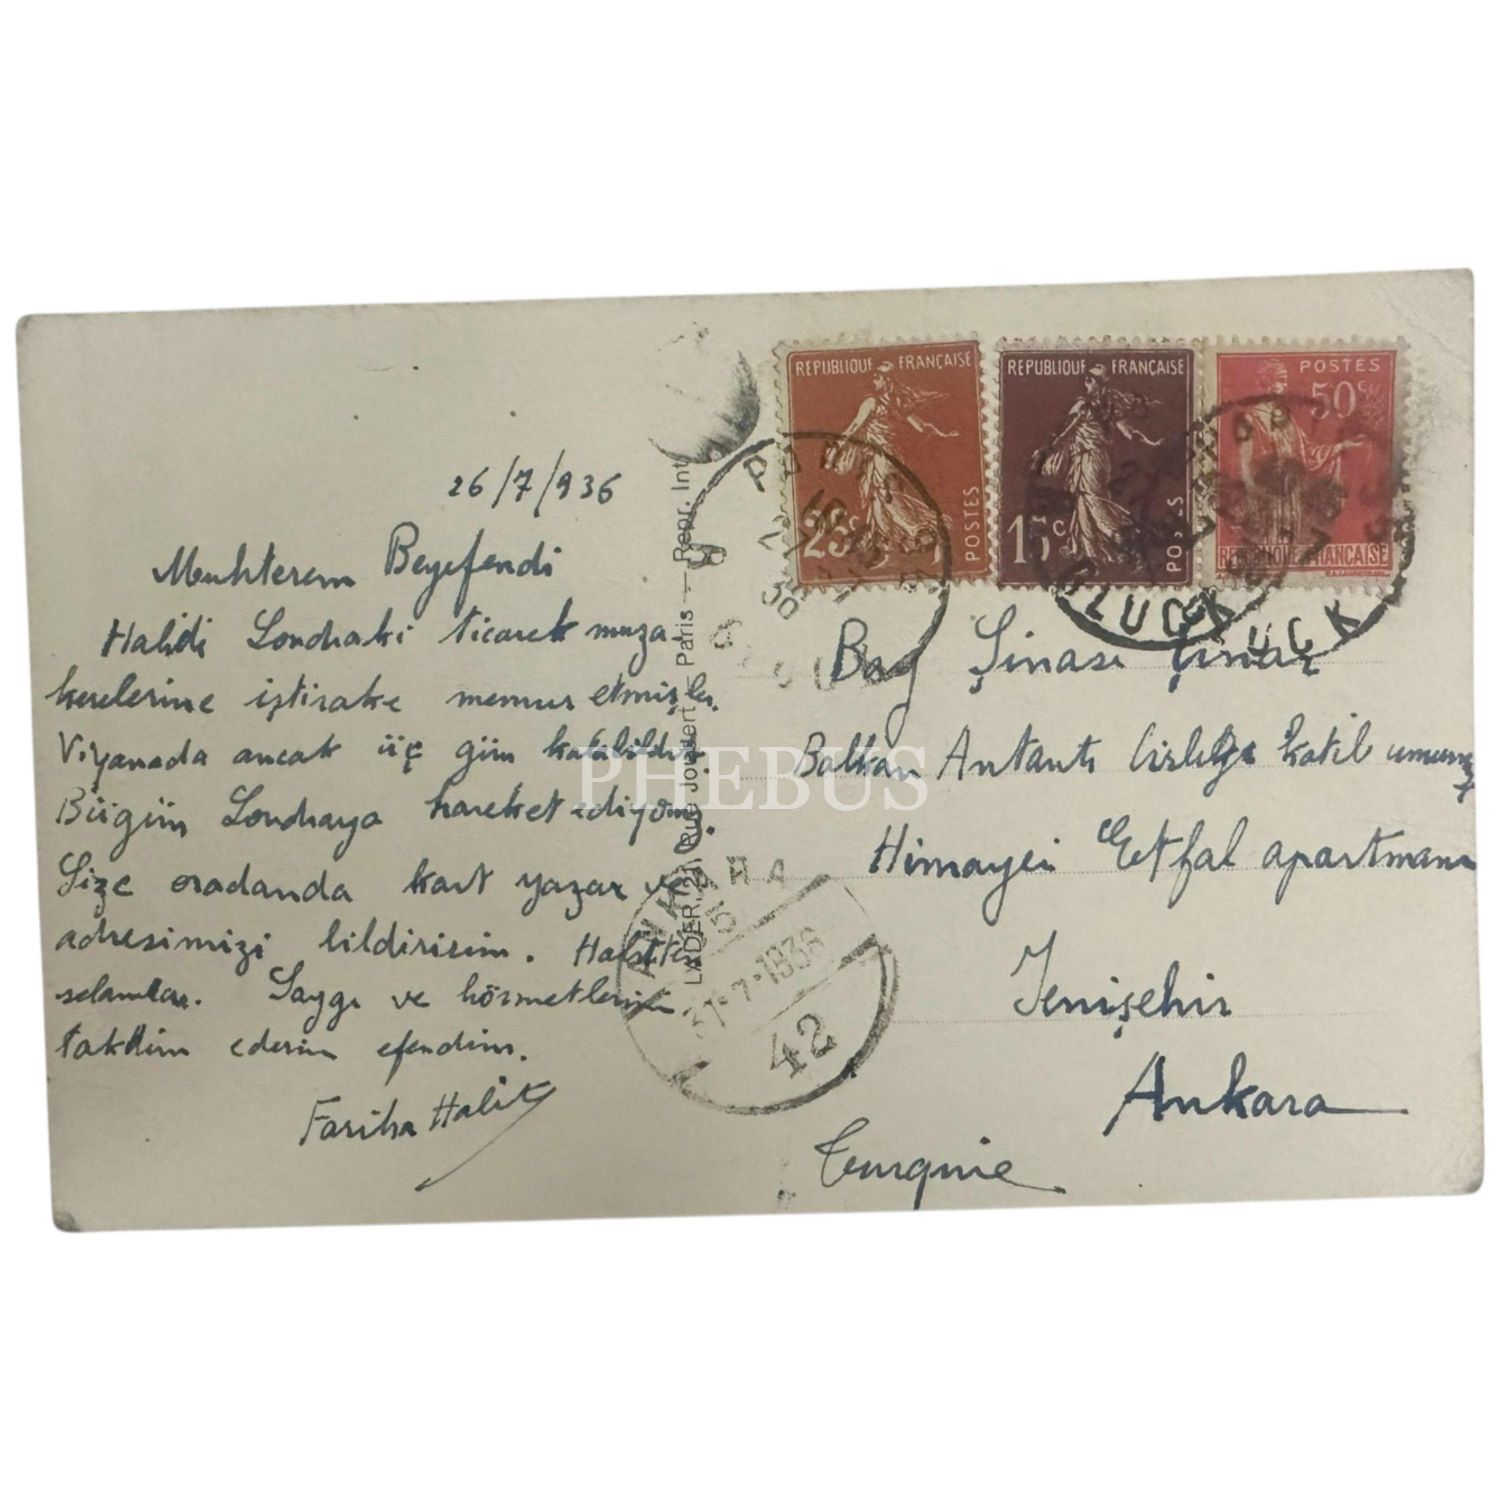 26/7/936
Muhterem Beyefendi
Halidi Londraki ticaret muza-
kerelerine iştirake memur etmişler.
Viyanada ancak üç gün kalabildik.
Bügün Londraya hareket ediyoruz.
Size oradanda kart yazar ve
adresimizi bildiririm. Halitten
selamlar. Saygı ve hörmetlerimi
takdim ederim efendim.
Fariha Halit
LADER, 24, Rue Joubert - Paris — Repr. Int
REPUBLIQUE FRANÇAISE
25c
POSTES
REPUBLIQUE FRANÇAISE
15c
POSTES
POSTES
50c
REPUBLIQUE FRANÇAISE
PARIS
GLUCK
GLUCK
ANKARA
5
31·7·1936
42
Bay Şinasi
Balkan Antantı katib umumi
Himayei Etfal apartmanı
Yenişehir
Ankara
Turquie
PHEBUS